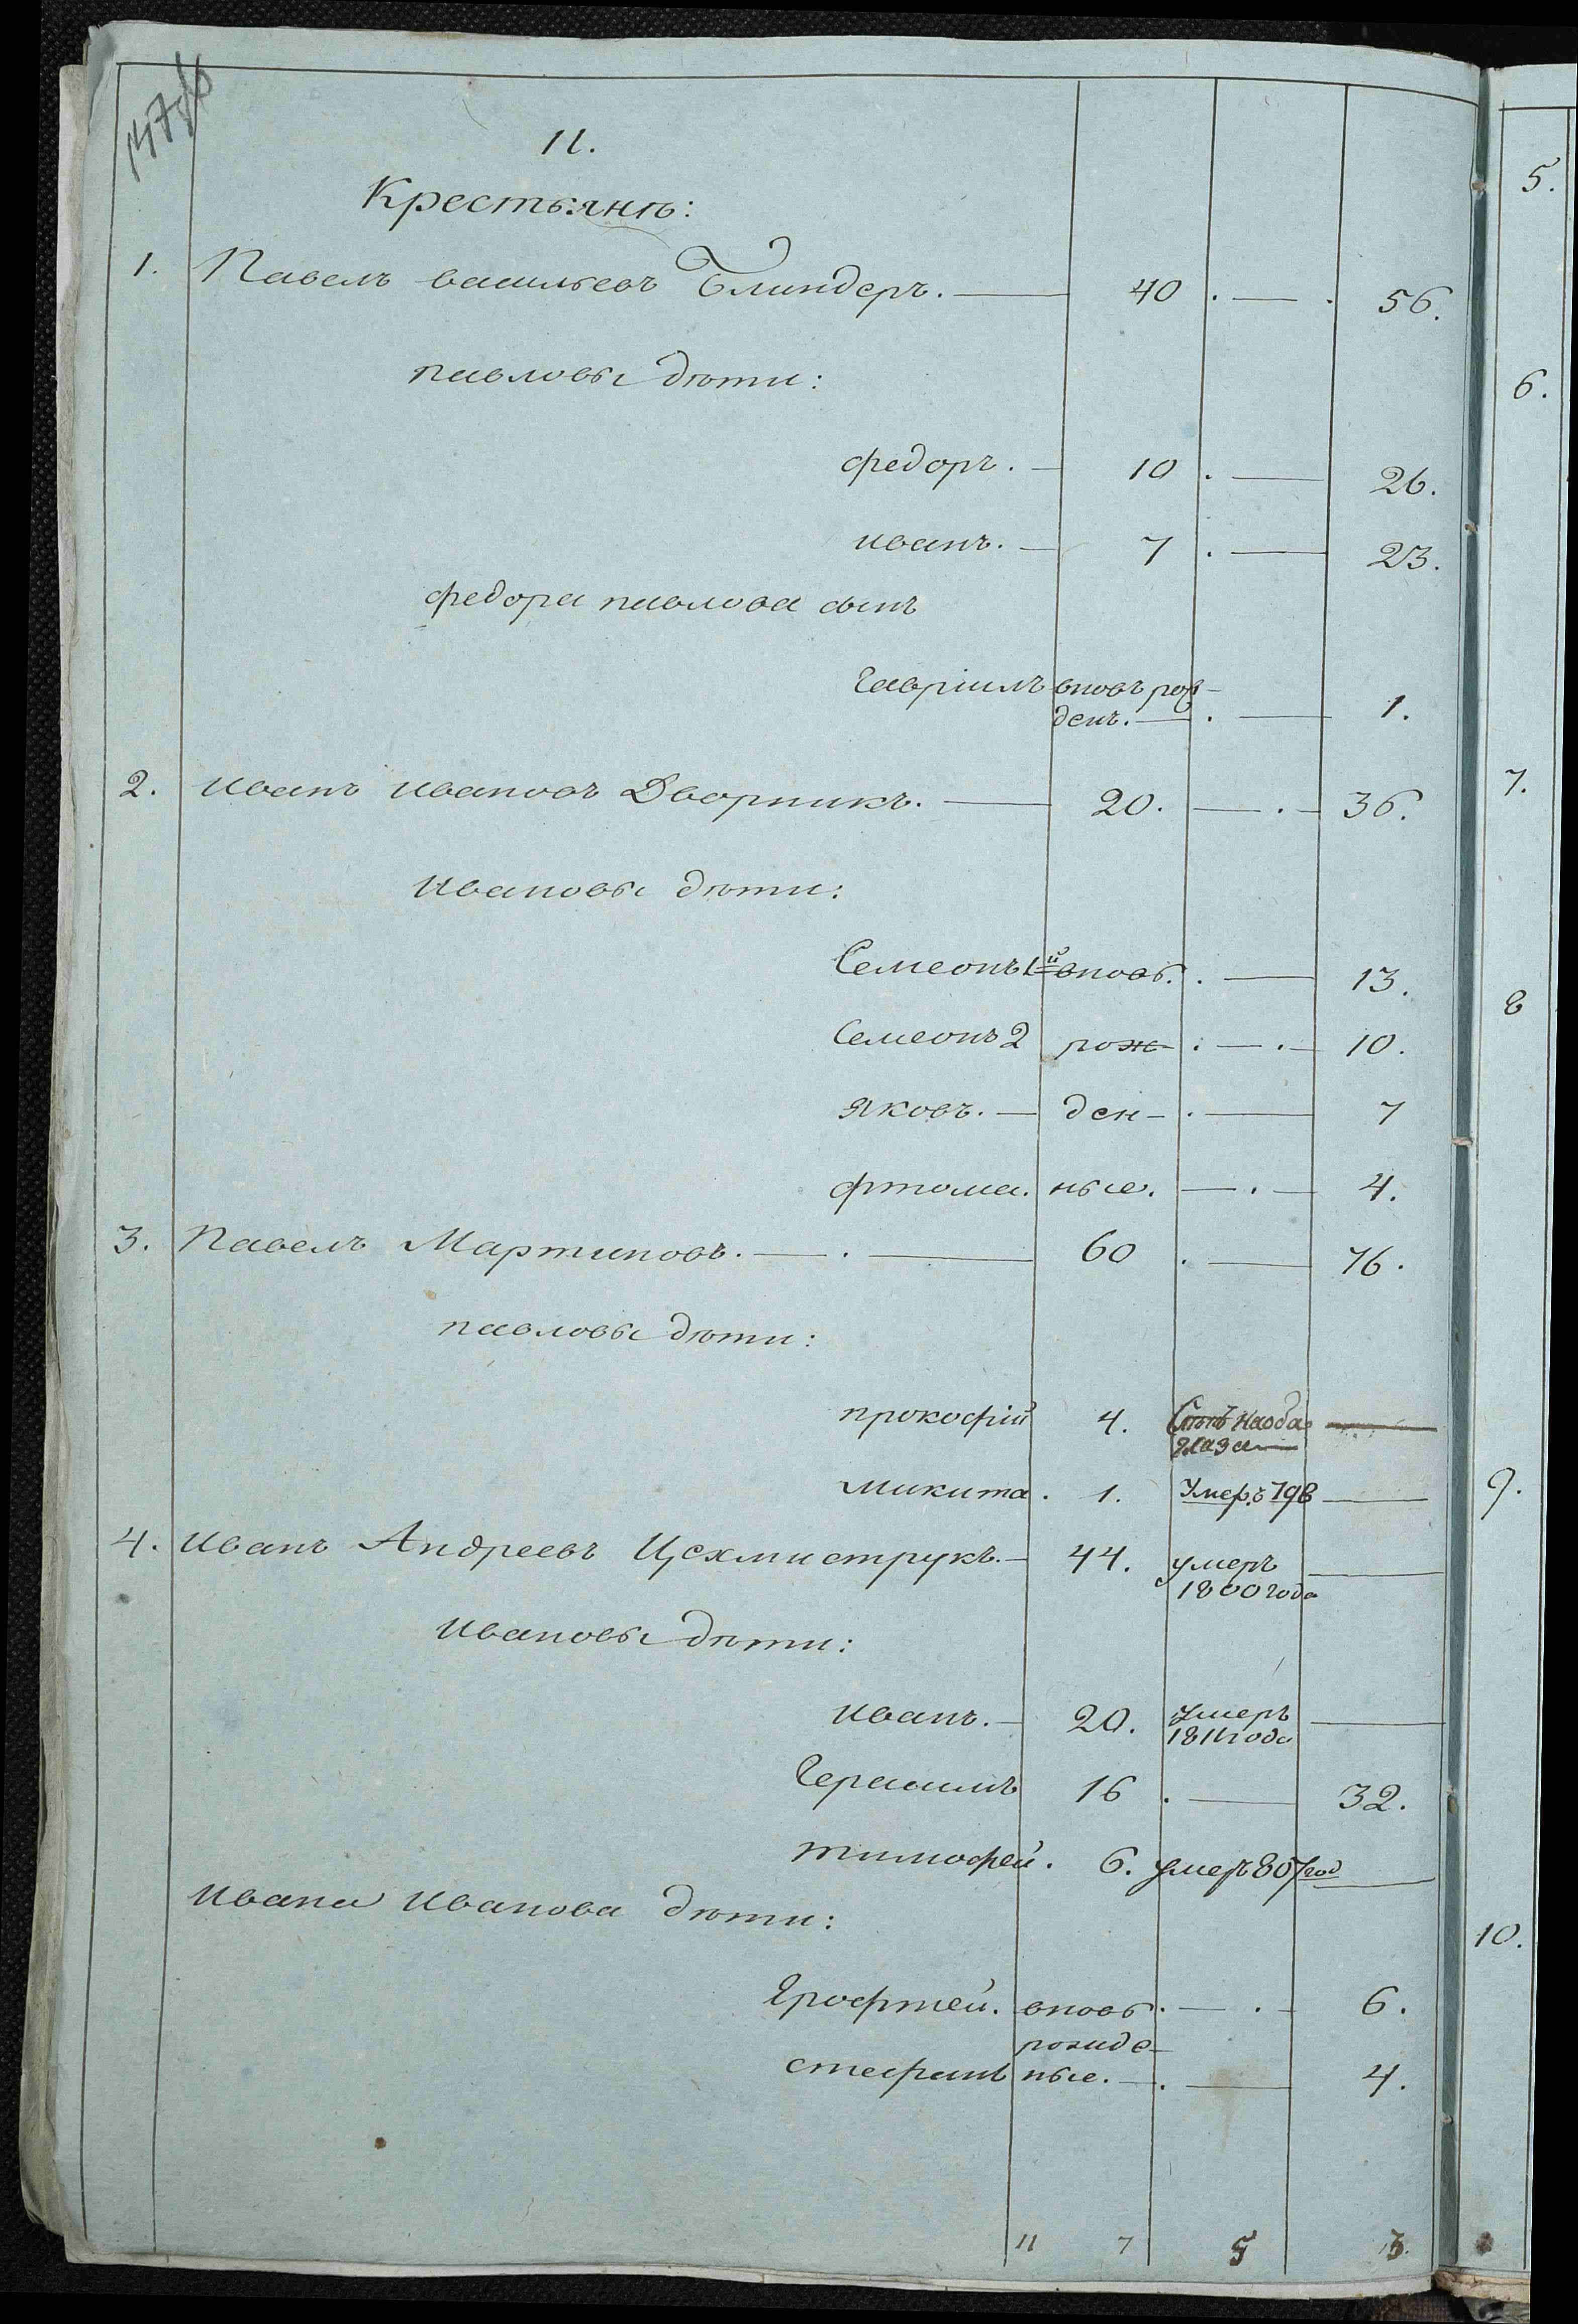 147об
11.
Крестьянъ:
1. Павелъ васильевъ Блиндеръ. — 40 . — . 56.
павловы дѣти:
федоръ. — 10 . — 26.
иванъ. — 7 . — 23.
федора павлова сынъ
Гавріилъ вновь рож-
денъ. — . — 1.
2. иванъ ивановъ Дворникъ. — 20. — . — 36.
ивановы дѣти:
Семеонъ 1й вновь. . — 13.
Семеонъ 2 рож- . — . — 10.
яковъ. — ден- . — 7
фтома. ные. — . — 4.
3. Павелъ Мартиновъ. — . — 60 . — 76.
павловы дѣти:
прокофій 4. Слѣпъ на оба —
глаза —
микита. 1. Умеръ 798 —
4. иванъ Андреевъ Цехмиструкъ. — 44. умеръ —
1800 года
ивановы дѣти:
иванъ. — 20. умеръ —
1811 года
Герасимъ 16 . — 32.
тимофей. 6. умеръ 807 год —
Ивана Иванова дѣти:
Ерофтей. вновь . — . — 6.
рожде-
стефанъ ные. — . — 4.
11 7 5 13.
5.
6.
7.
8
9.
10.